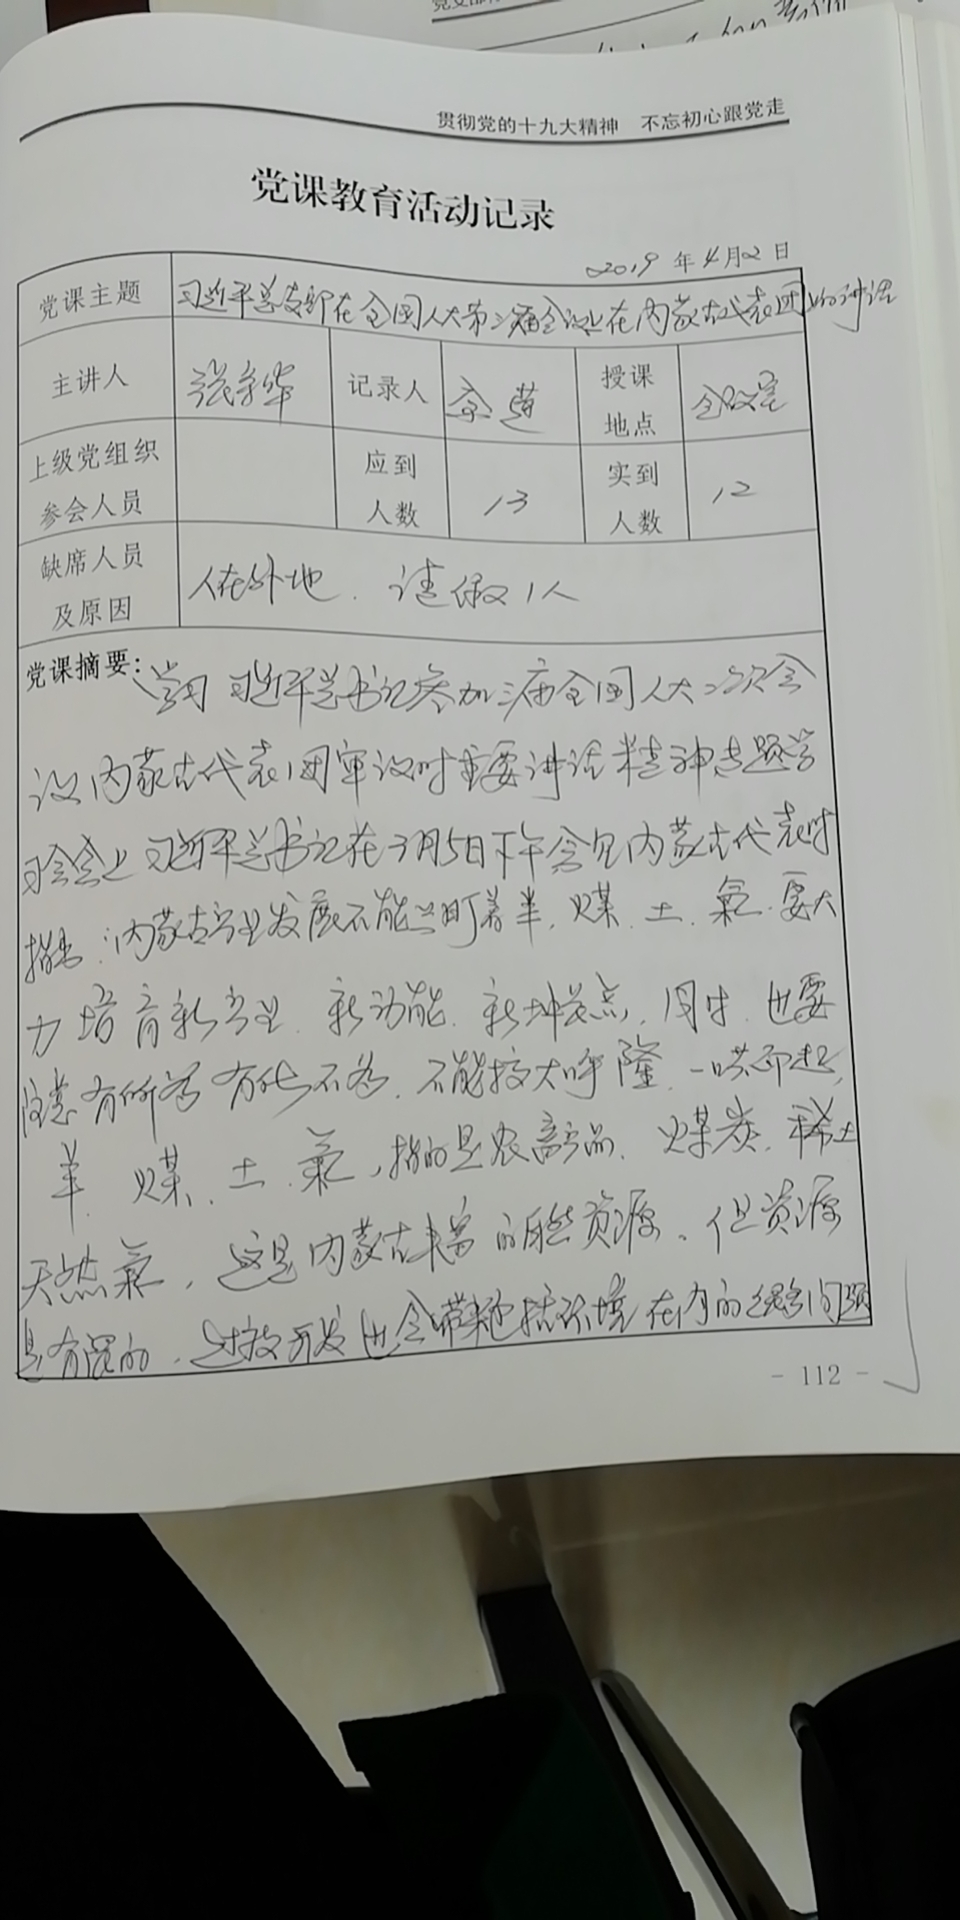 贯彻党的十九大精神 不忘初心跟党走
党课教育活动记录
2019 年 4月2 日
党课主题 习近平总支部在全国人大第二届会议上在内蒙古代表团上的讲话
主讲人 记录人 授课地点 会议室
上级党组织参会人员 应到人数 13 实到人数 12
缺席人员及原因 人在外地. 请假1人
党课摘要: 学习习近平总书记参加三届全国人大二次会
议内蒙古代表团审议时重要讲话精神专题学
习会上习近平总书记在3月5日下午会见内蒙古代表时
指出:内蒙古产业发展不能只盯着羊. 煤. 土. 氣. 要大
力培育新产业. 新动能. 新增长点. 同时. 也要
注意有所为有所不为. 不能搞大呼隆. 一哄而起,
羊. 煤. 土. 氣, 指的是农畜产品. 煤炭. 稀土
天然氣, 这是内蒙古丰富的自然资源. 但资源
是有限的. 过度开发也会带来包括环境在内的 问题
- 112 -